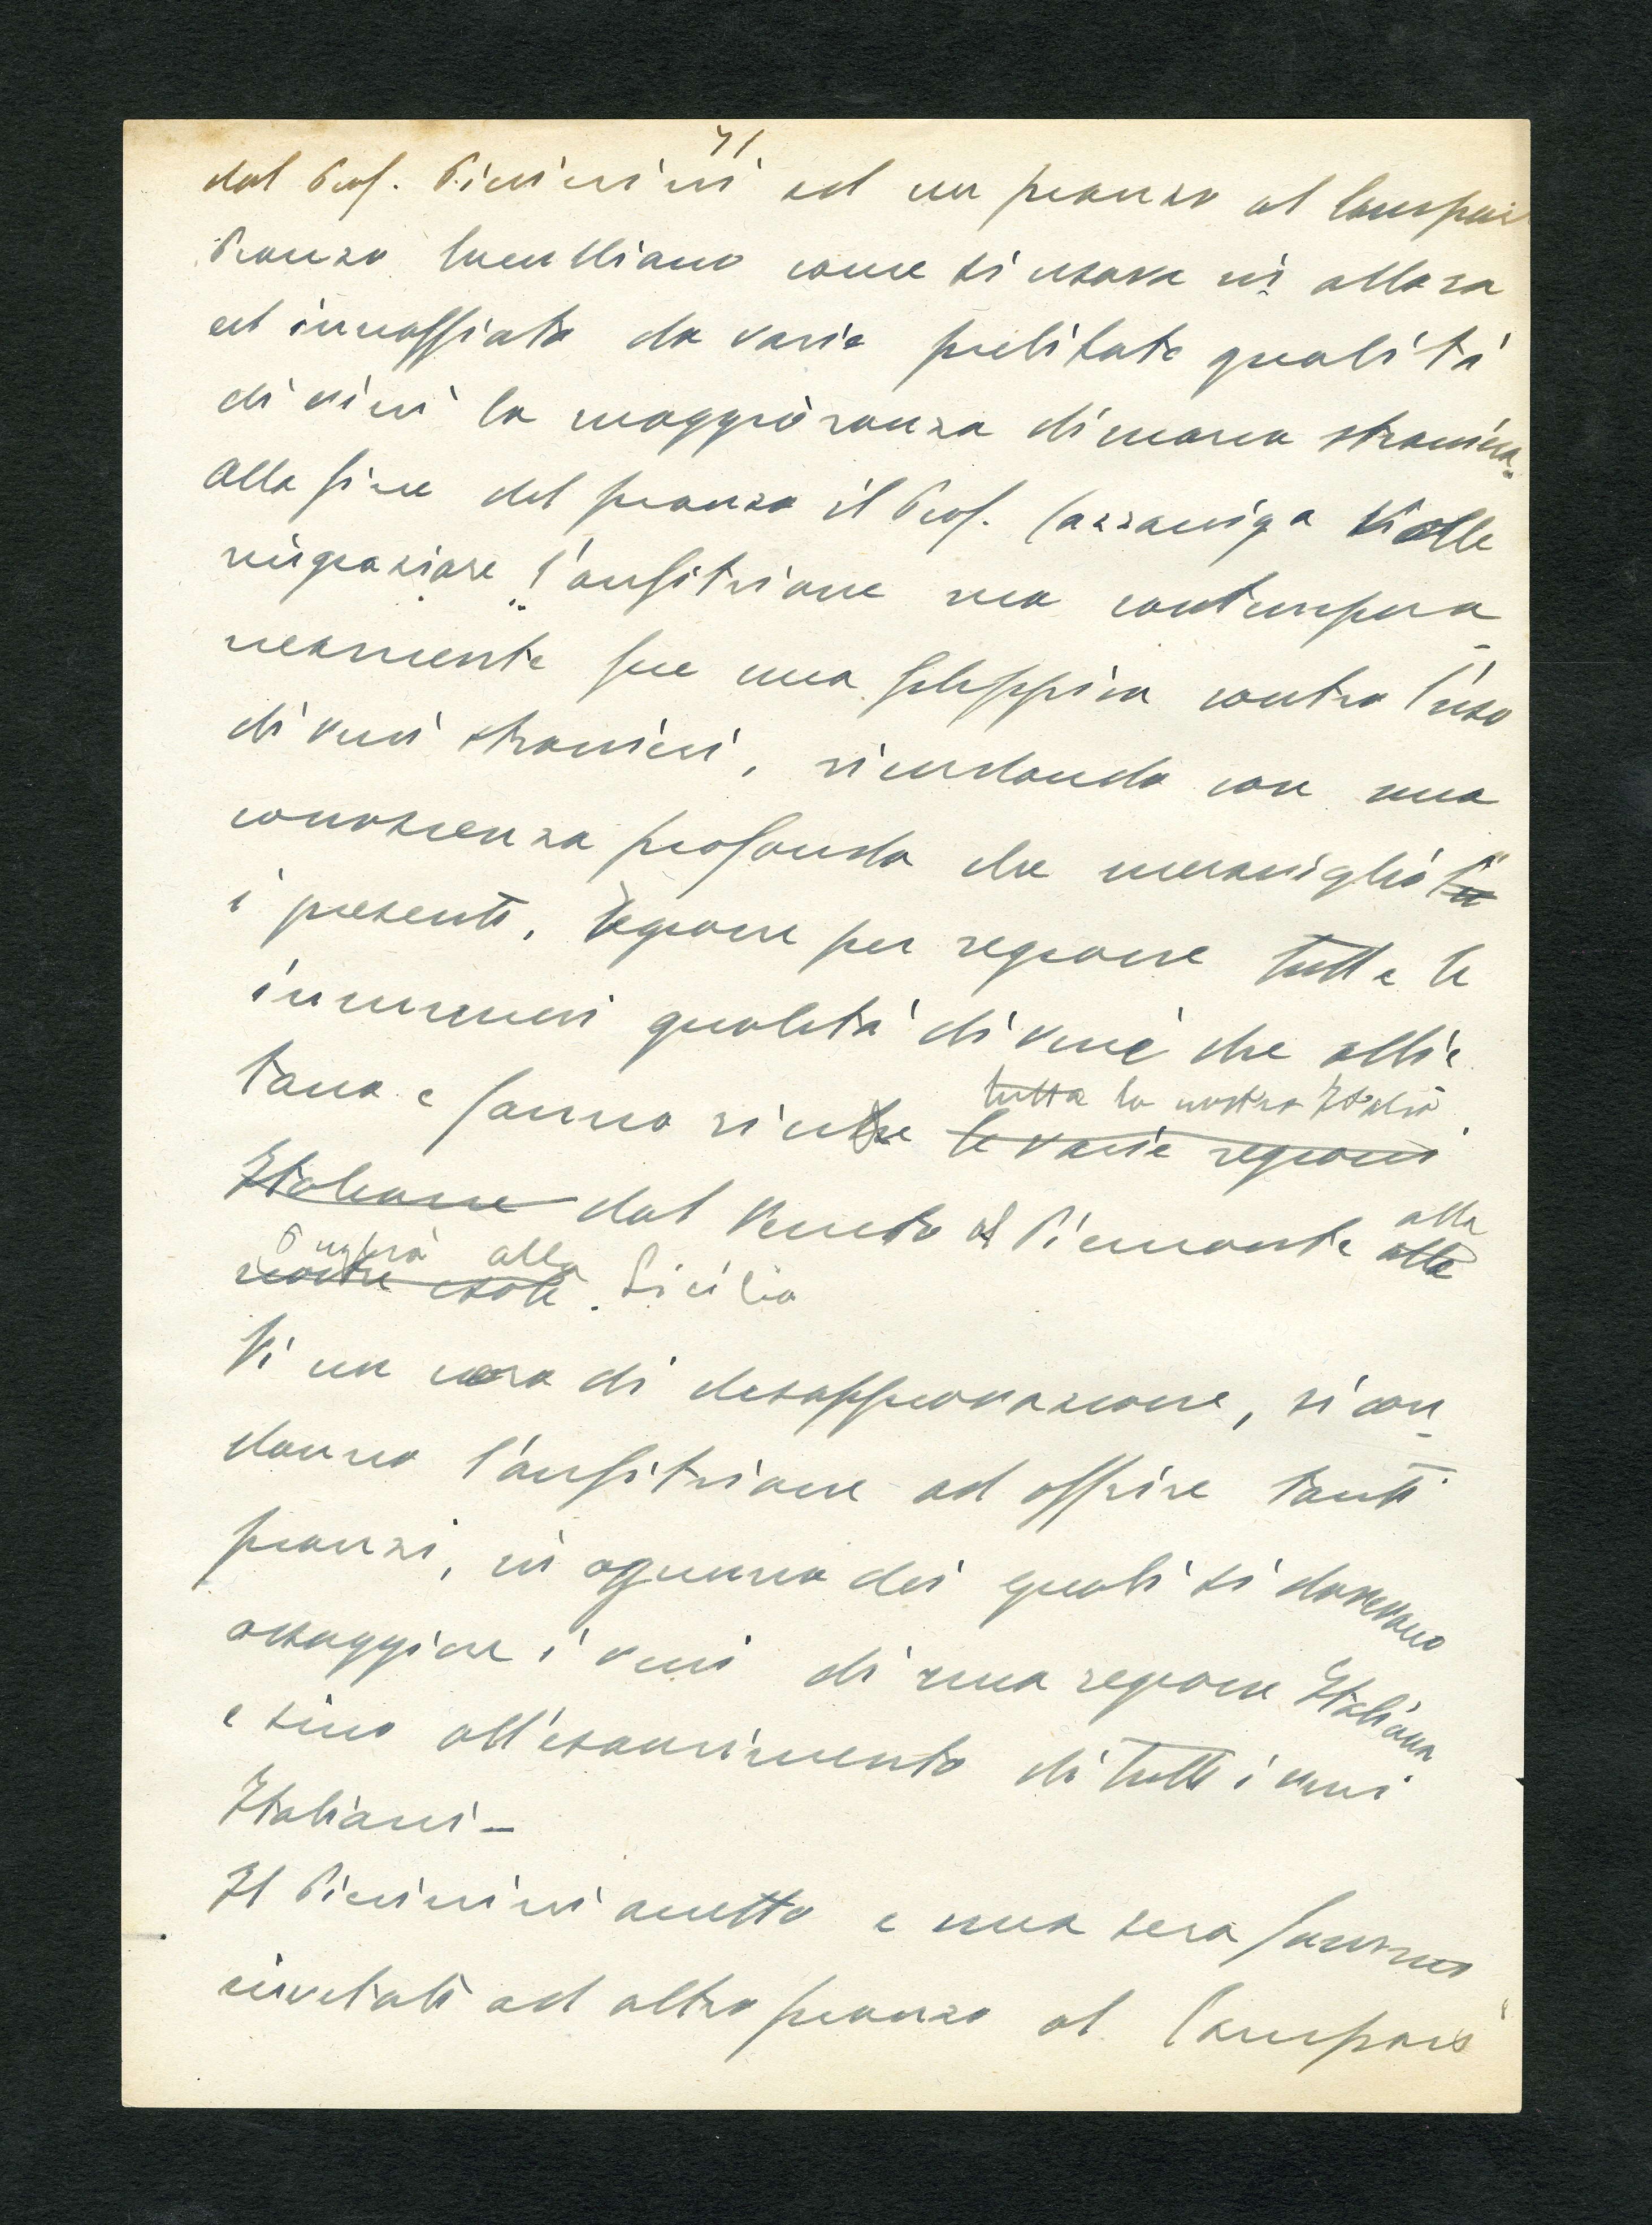 71
dal Prof. Piccinini ad un pranzo al Campari
Pranzo lucculliano come si usava in allora
ed innaffiato da varie prelibate qualità
di vini la maggioranza di marca straniera.
Alla fine del pranzo il Prof. Cazzaniga volle
ringraziare l'anfitrione ma contempora-
neamente fece una filippica contro l'uso
di vini stranieri, ricordando con una
conoscenza profonda che meravigliò
i presenti, regione per regione tutte le
innumeri qualità di vini che allie
tano e fanno ricche le varie regioni
tutta la nostra Italia
Italiane dal Veneto al Piemonte alle alla
nostre isole. Puglia alla Sicilia
Vi un coro di disapprovazione, si con-
dannò l'anfitrione ad offrire tanti
pranzi, in ognuno dei quali si dovevano
assaggiare i vini di una regione Italiana
e sino all'esaurimento di tutti i vini
Italiani -
Il Piccinini accettò e una sera fummo
invitati ad altro pranzo al Campari